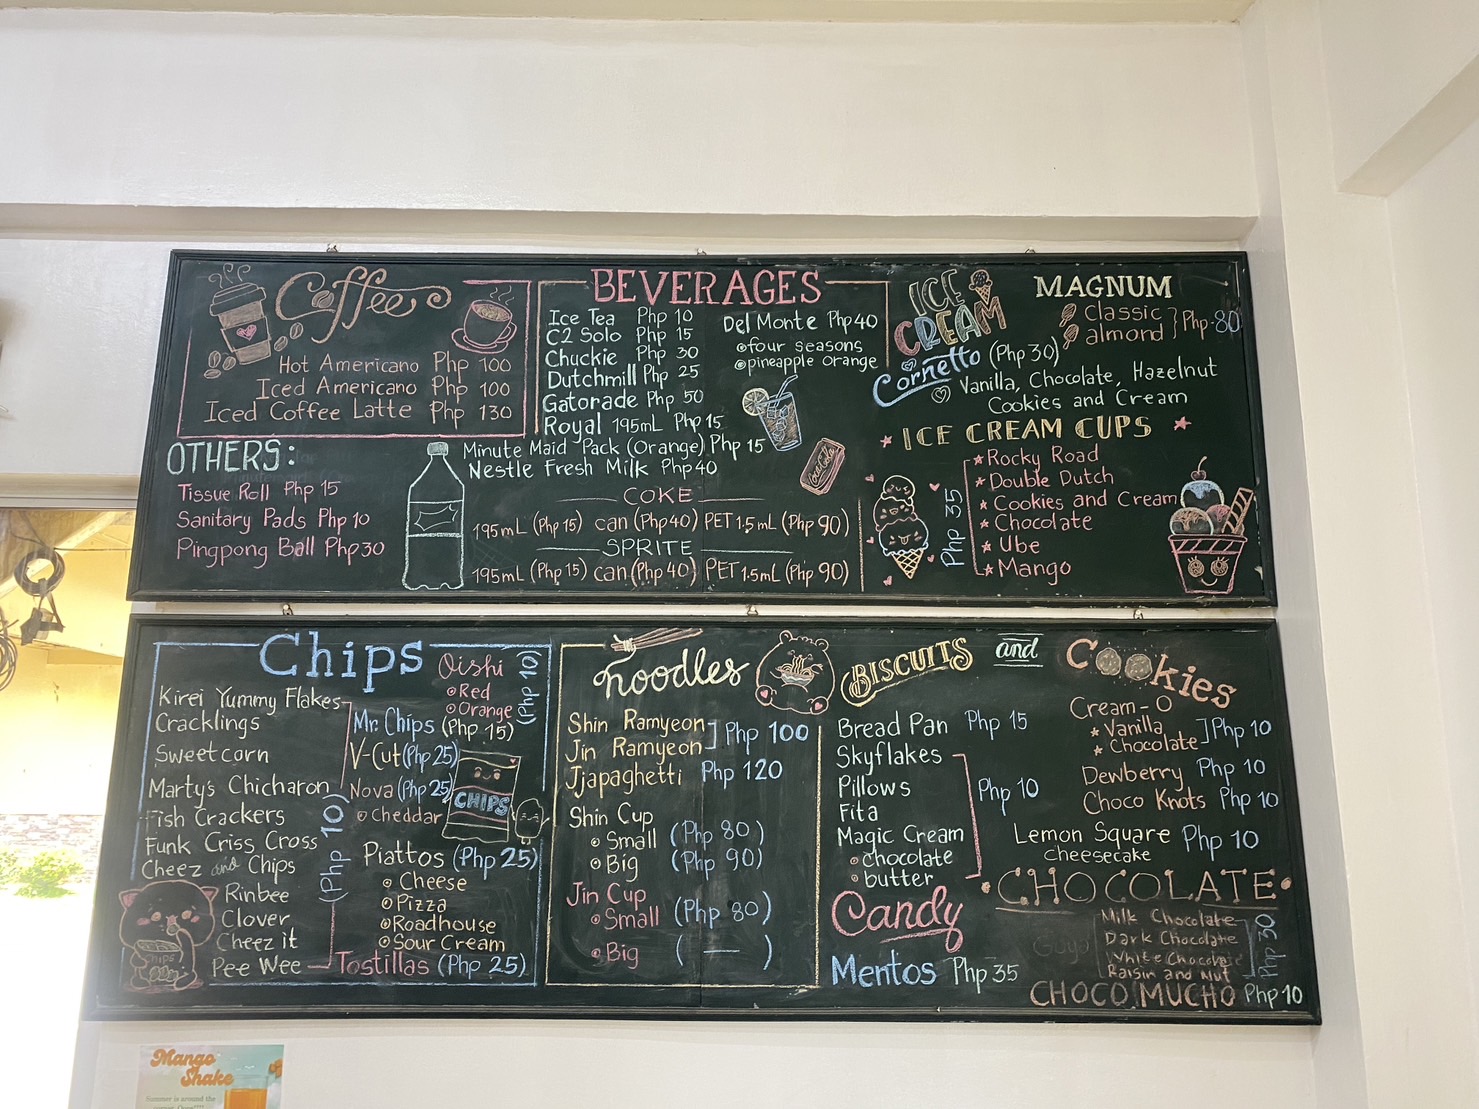 Coffee
Hot Americano Php 100
Iced Americano Php 100
Iced Coffee Latte Php 130
OTHERS:
Tissue Roll Php 15
Sanitary Pads Php 10
Pingpong Ball Php 30
BEVERAGES
Ice Tea Php 10
C2 Solo Php 15
Chuckie Php 30
Dutchmill Php 25
Gatorade Php 50
Royal 195mL Php 15
Minute Maid Pack (Orange) Php 15
Nestle Fresh Milk Php 40
Del Monte Php 40
four seasons
pineapple orange
Coca Cola
COKE
195mL (Php 15) can (Php 40) PET 1.5mL (Php 90)
SPRITE
195mL (Php 15) can (Php 40) PET 1.5mL (Php 90)
ICE
CREAM
Cornetto (Php 30)
Vanilla, Chocolate, Hazelnut
Cookies and Cream
MAGNUM
Classic
almond
Php 80
ICE CREAM CUPS
Php 35
Rocky Road
Double Dutch
Cookies and Cream
Chocolate
Ube
Mango
Chips
Kirei Yummy Flakes
Cracklings
Sweetcorn
Marty's Chicharon
Fish Crackers
Funk Criss Cross
Cheez and Chips
Rinbee
Clover
Cheez it
Pee Wee
(Php 10)
CHIPS
Oishi
Red
Orange
(Php 10)
Mr. Chips (Php 15)
V-Cut (Php 25)
Nova (Php 25)
Cheddar
CHIPS
Piattos (Php 25)
Cheese
Pizza
Roadhouse
Sour Cream
Tostillas (Php 25)
noodles
Shin Ramyeon
Jin Ramyeon
Php 100
Jjapaghetti Php 120
Shin Cup
Small (Php 80)
Big (Php 90)
Jin Cup
Small (Php 80)
Big ( — )
BISCUITS and Cookies
Bread Pan Php 15
Skyflakes
Pillows
Fita
Magic Cream
chocolate
butter
Php 10
Candy
Mentos Php 35
Cream-O
Vanilla
Chocolate
Php 10
Dewberry Php 10
Choco Knots Php 10
Lemon Square Php 10
Cheesecake
CHOCOLATE
Goya
Milk Chocolate
Dark Chocolate
White Chocolate
Raisin and Nut
Php 30
CHOCO MUCHO Php 10
Mango
Shake
Summer is around the